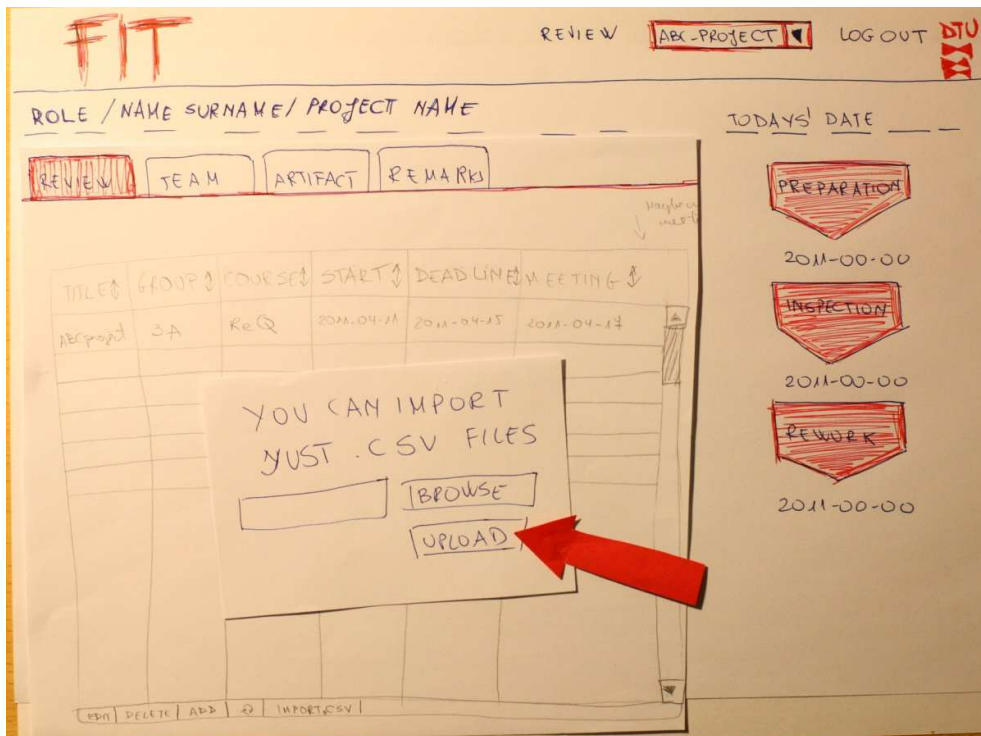 FIT
REVIEW ABC-PROJECT LOG OUT DTU
ROLE / NAME SURNAME / PROJECT NAME
TODAYS' DATE
REVIEW TEAM ARTIFACT REMARKS
TITLE GROUP COURSE START DEADLINE MEETING
ABCprojet 3A ReQ 2011-04-11 2011-04-15 2011-04-17
YOU CAN IMPORT
YUST .CSV FILES
BROWSE
UPLOAD
EDIT DELETE ADD IMPORT.CSV
PREPARATION
2011-00-00
INSPECTION
2011-00-00
REWORK
2011-00-00